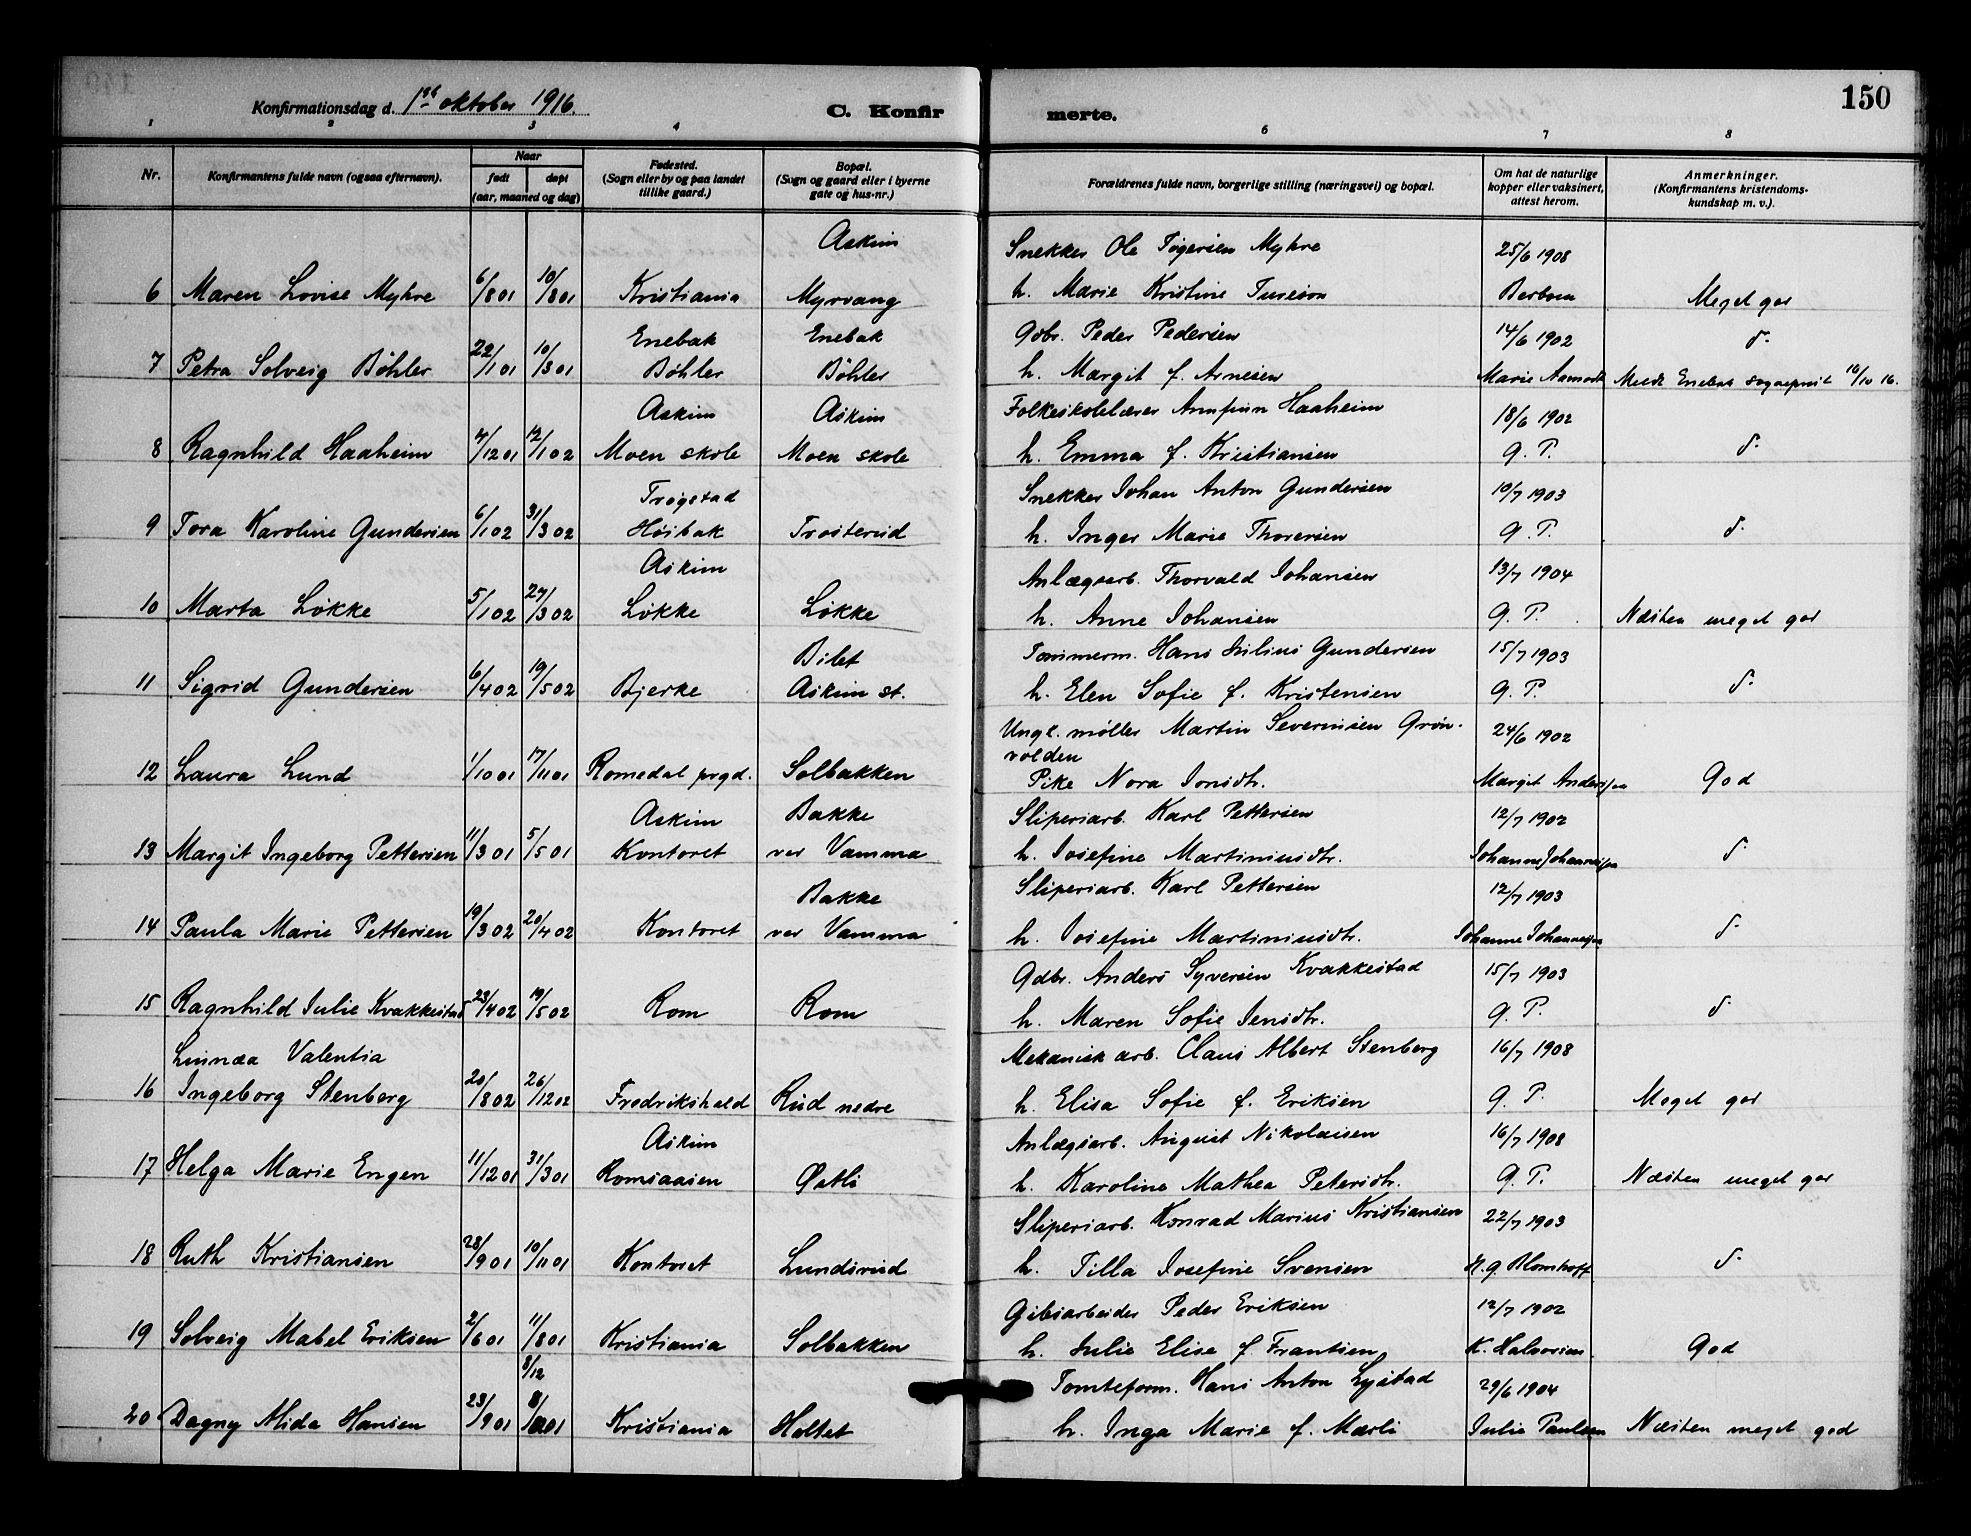 Konfirmationsdag d. 1ste oktober 1916. C. Konfirmerte. 150
1 2 3 4 6 7 8
Nr. Konfirmantens fulde navn (ogsaa efternavn). Naar født døpt (aar, maaned og dag) Fødested. (Sogn eller by og paa landet tillike gaard.) Bopæl. (Sogn og gaard eller i byerne gate og hus-nr.) Forældrenes fulde navn, borgerlige stilling (næringsvei) og bopæl. Om hat de naturlige kopper eller vaksinert, attest herom. Anmerkninger. (Konfirmantens kristendomskundskap m. v.).
Askim Snekker Ole Tøgersen Myhre 25/6 1908
6 Maren Lovise Myhre 6/8 01 10/8 01 Kristiania Myrvang h. Marie Kristine Tureson Berbom Meget god
Enebak Enebak Gdbr. Peder Pedersen 14/6 1902 d.
7 Petra Solveig Bøhler 22/1 01 10/3 01 Bøhler Bøhler h. Margit f. Arnesen Marie Aamodt Meldt Enebak sogneprest 16/10 16.
Askim Askim Folkeskolelærer Arnfinn Haaheim 18/6 1902
8 Ragnhild Haaheim 4/12 01 12/1 02 Moen skole Moen skole h. Emma f. Kristiansen G. P. d.
Trøgstad Snekker Johan Anton Gundersen 10/7 1903
9 Tora Karoline Gundersen 6/1 02 31/3 02 Høibak Trosterud h. Inger Marie Thoresen G. P. d.
Askim Anlægsarb. Thorvald Johansen 13/7 1904
10 Marta Løkke 5/1 02 27/3 02 Løkke Løkke h. Anne Johansen G. P. Næsten meget god
Bilet Tømmerm. Hans Julius Gundersen 15/7 1903
11 Sigrid Gundersen 6/4 02 19/5 02 Bjerke Askim st. h. Elen Sofie f. Kristensen G. P. d.
Ungk. møller Martin Severinsen Grøn-
volden 24/6 1902
12 Laura Lund 1/10 01 17/11 01 Romedal prgd. Solbakken Pike Nora Jonsdtr. Margit Andersen God
Askim Bakke Sliperiarb. Karl Pettersen 12/7 1902
13 Margit Ingeborg Pettersen 11/3 01 5/5 01 Kontoret ved Vamma h. Josefine Martiniusdtr. Johanne Johannesen d.
Bakke Sliperiarb. Karl Pettersen 12/7 1903
14 Paula Marie Pettersen 19/3 02 20/4 02 Kontoret ved Vamma h. Josefine Martiniusdtr. Johanne Johannesen d.
Gdbr. Anders Syversen Kvakkestad 15/7 1903
15 Ragnhild Julie Kvakkestad 23/4 02 19/5 02 Rom Rom h. Maren Sofie Jensdtr. G. P. d.
Linnæa Valentia Mekanisk arb. Claus Albert Stenberg 16/7 1908
16 Ingeborg Stenberg 20/8 02 26/12 02 Fredrikshald Rud nedre h. Elisa Sofie f. Eriksen G. P. Meget god
Askim Anlægsarb. August Nikolaisen 16/7 1908
17 Helga Marie Engen 11/12 01 31/3 01 Romsaasen Østli h. Karoline Mathea Petersdtr. G. P. Næsten meget god
Sliperiarb. Konrad Marius Kristiansen 22/7 1903
18 Ruth Kristiansen 28/9 01 10/11 01 Kontoret Lundsrud h. Tilla Josefine Svensen H. G. Blomhoff d.
Gibsarbeider Peder Eriksen 12/7 1902
19 Solveig Mabel Eriksen 2/6 01 11/8 01 Kristiania Solbakken h. Julie Elise f. Frantsen K. Halvorsen God
8/12 Tomteform. Hans Anton Lystad 29/6 1904
20 Dagny Alida Hansen 23/9 01 8/ 01 Kristiania Holtet h. Inga Marie f. Marli Julie Paulsen Næsten meget god